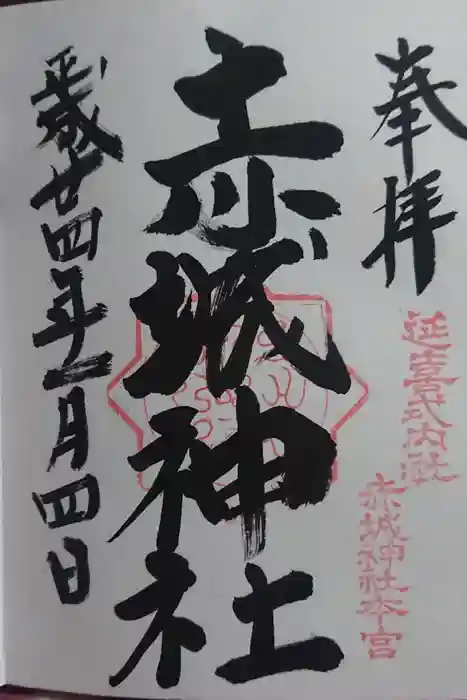 奉拝
延喜式内社
赤城神社本宮
赤城神社
平成廿四年一月四日